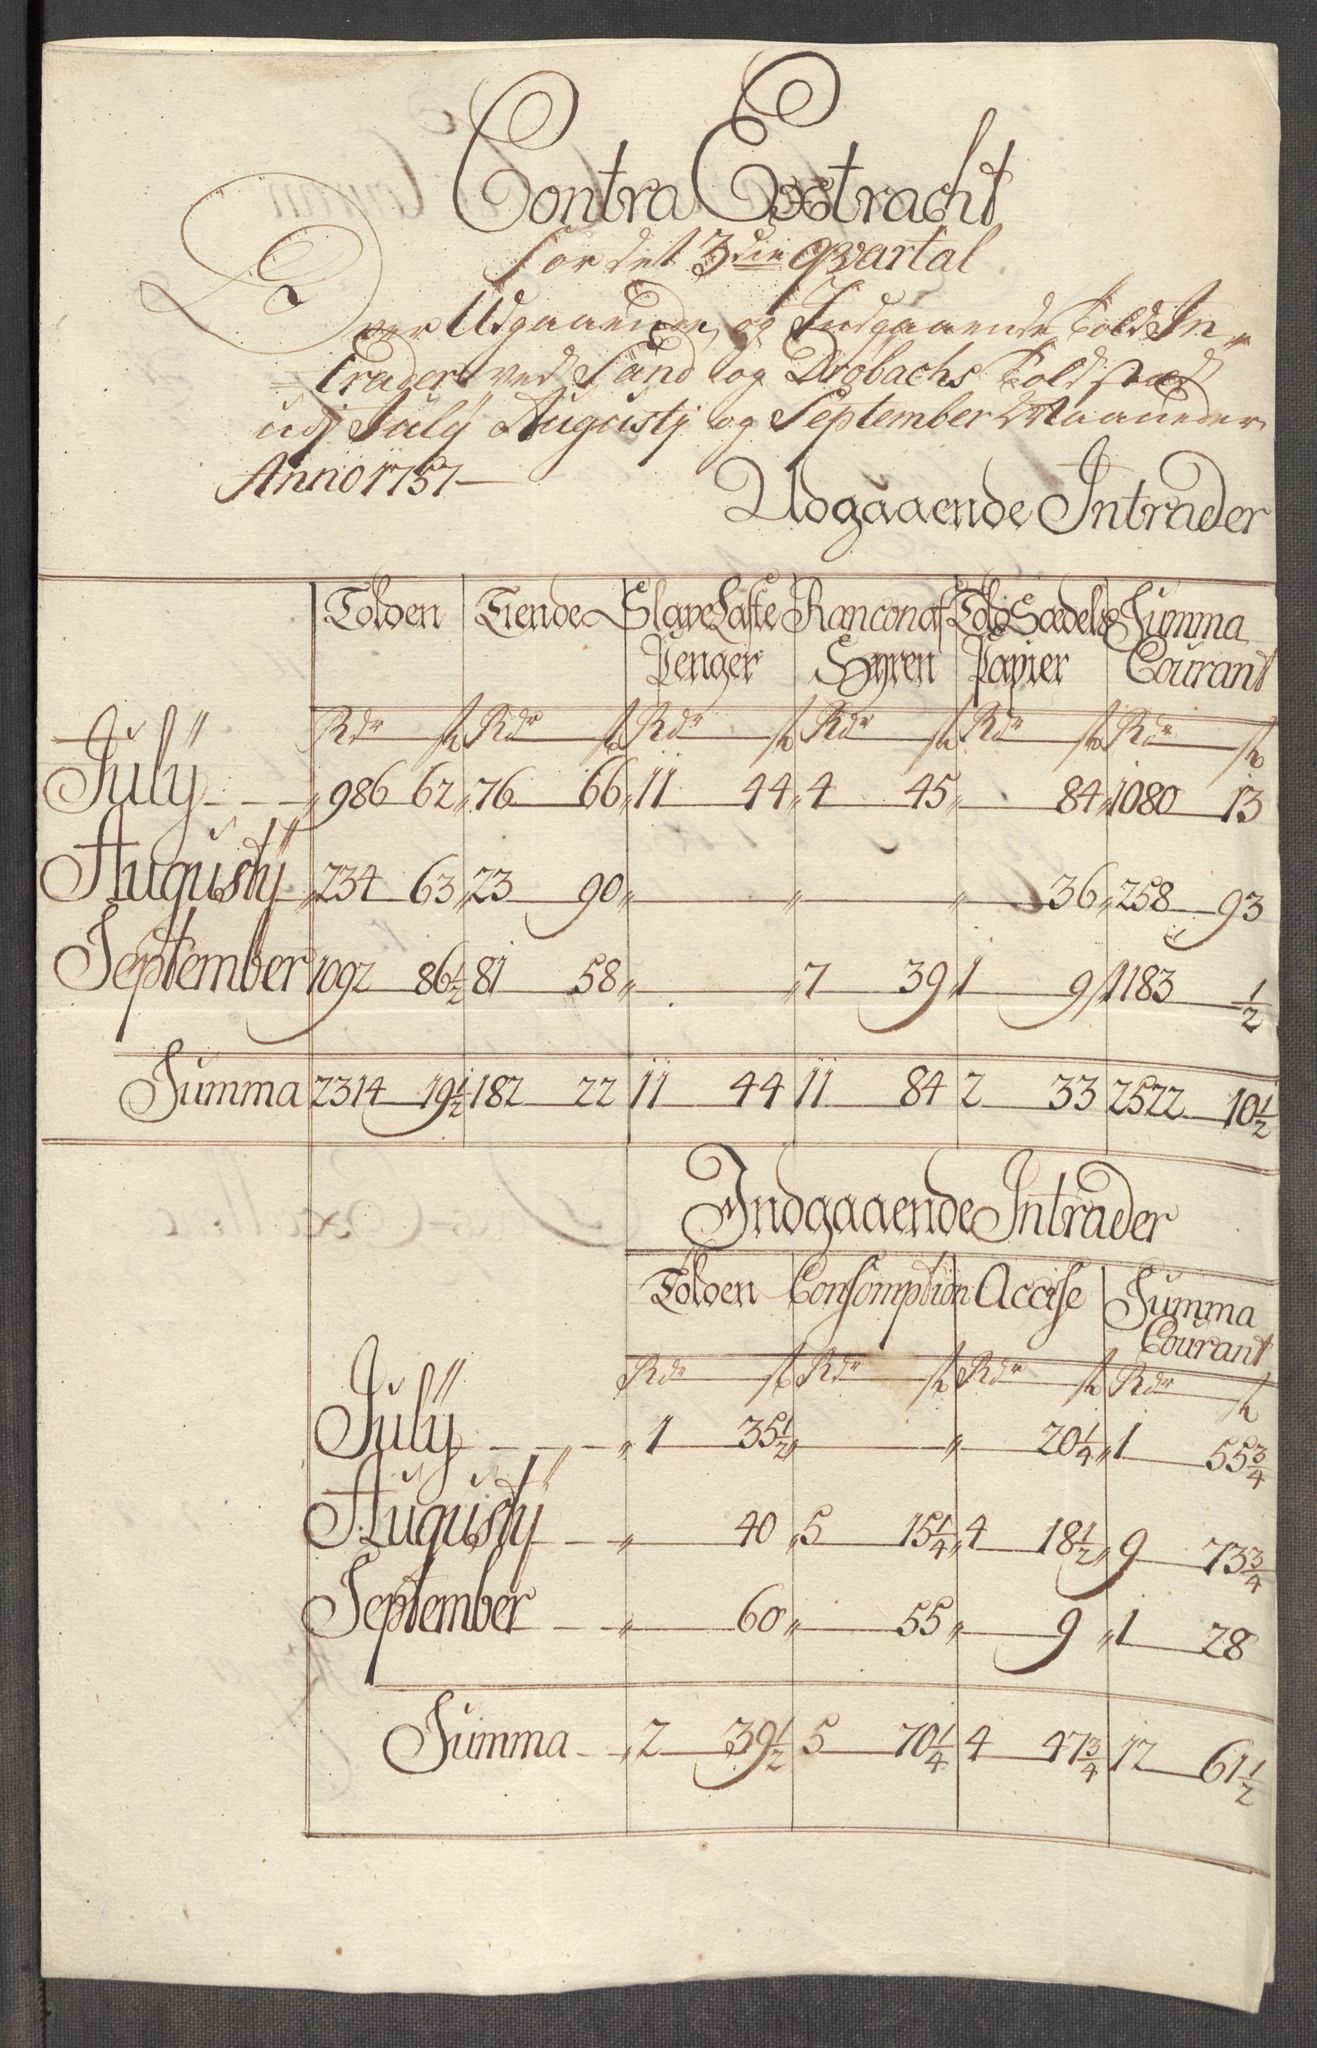 Contra Extracht
for det 3die Qvartal
Over Udgaaende og Indgaaende Told In-
=trader ved Sand og Drøbachs Toldsted
udj Julÿ Augustj og September Maaneder
Anno 1757
Udgaaende Intrader
Tolden Tiende Slave Laste Rancon af Told Sædels Summa
Penger Hyren Papier Courant
Rdr ſk Rdr ſk Rdr ſk Rdr ſk Rdr ſk Rdr ſk
Julÿ 986 62 76 66 11 44 4 45 84 1080 13
Augustÿ 234 63 23 90 " " 36 258 93
September 1092 86½ 81 58 " 7 39 1 9 1183 ½
Summa 2314 19½ 182 22 11 44 11 84 2 33 2522 10½
Indgaaende Intrader
Tolden Consomption Accise Summa
Courant
Rdr ſk Rdr ſk Rdr ſk Rdr ſk
Julÿ 1 35½ " " 20¼ 1 55¾
Augustÿ " 40 5 15¼ 4 18½ 9 73¾
September " 60 " 55 " 9 1 28
Summa 2 39½ 5 70¼ 4 47¾ 12 61½